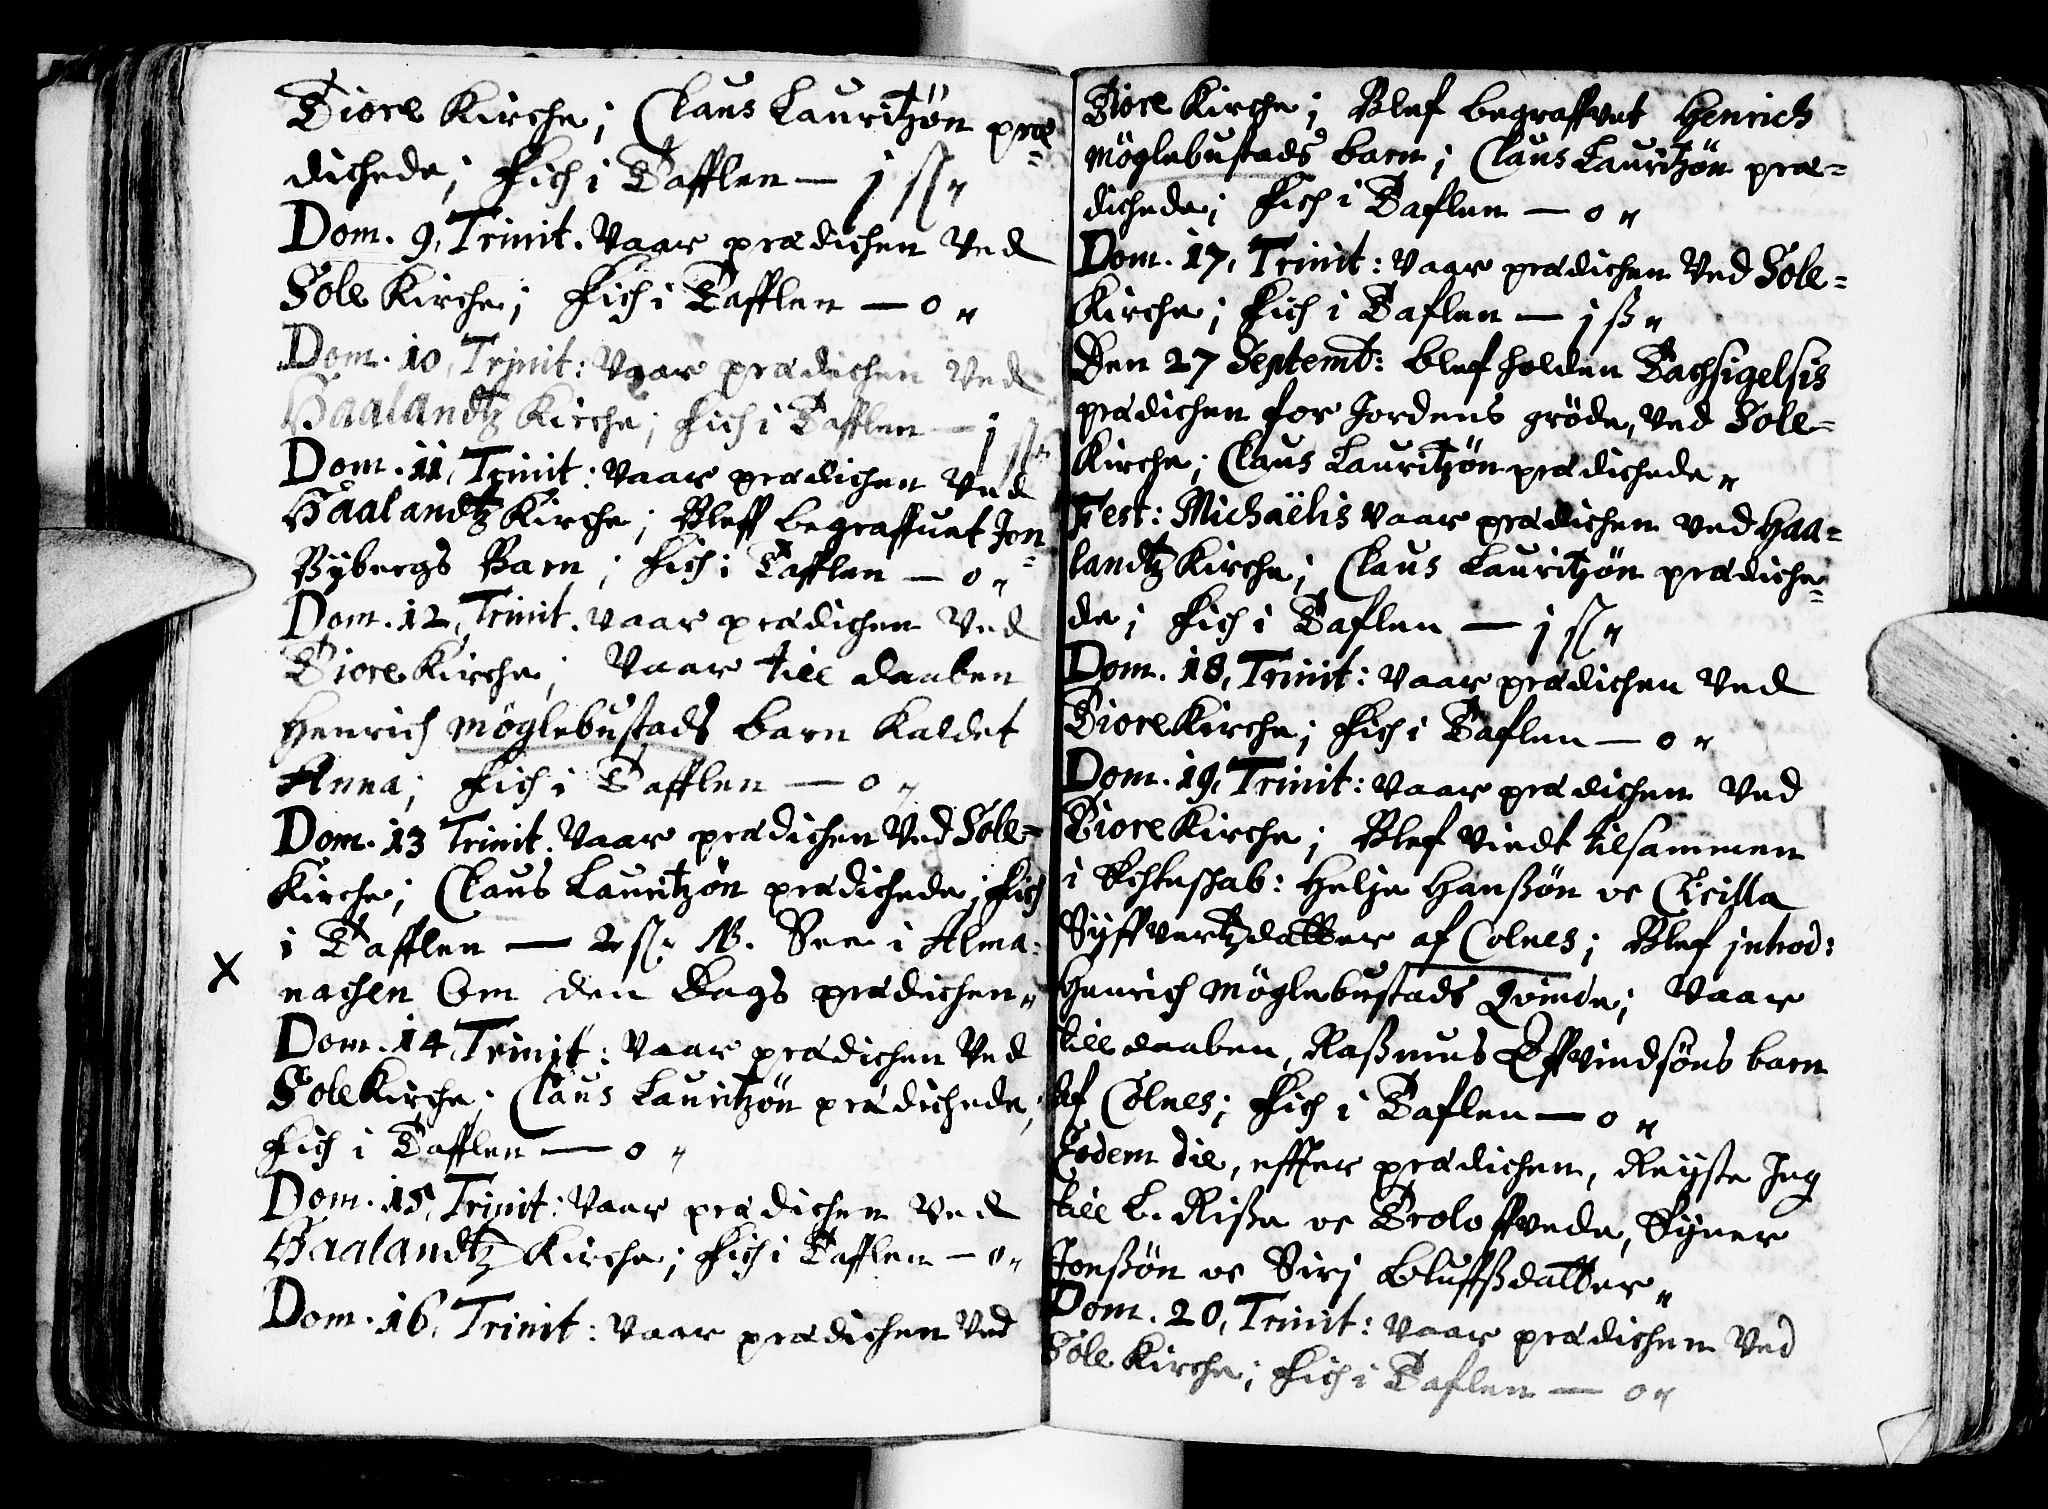 Tiore Kirche; Claus Lauritzøn præ=
dichede; Fich i Tafflen — j ß„
Dom. 9, Trinit. Vaar prædichen Ved
Sole Kirche; Fich i Tafflen — 0 „
Dom. 10, Trinit: Vaar prædichen Ved
Haalandtz Kirche; Fich i Tafflen — j ß„
Dom. 11, Trinit: Vaar prædichen Ved
Haalandtz Kirche; Bleff begraffuet Jon
Bybergs Barn; Fich i Tafflen — 0 „
Dom. 12, Trinit. Vaar prædichen Ved
Tiore Kirche; Vaar till daaben
Henrich Møglebustads barn kaldet
Anna; Fich i Tafflen — 0 „
Dom. 13 Trinit. Vaar prædichen Ved Sole=
Kirche; Claus Lauritzøn prædichede; Fich
i Tafflen — 2 ß„ NB. See i Alma:
x nachen Om den Dags prædichen„
Dom. 14, Trinit: Vaar prædichen Ved
Sole Kirche; Claus Lauritzøn prædichede;
Fich i Tafflen — 0 „
Dom. 15, Trinit: Vaar prædichen Ved
Haalandtz Kirche; Fich i Tafflen — 0„
Dom. 16, Trinit: Vaar prædichen Ved
Tiore Kirche; Blef begraffvet Henrich
Møglebustads barn; Claus Lauritzøn præ=
dichede; Fich i Taflen — 0 „
Dom. 17, Trinit: Vaar prædichen Ved Sole=
Kirche; Fich i Taflen — j ß„
Den 27 Septemb: blef holden Tachsigelsis
prædichen for Jordens grøde, Ved Sole=
Kirche; Claus Lauritzøn prædichede„
Fest: Michaëlis Vaar prædichen Ved Haa=
landtz Kirche; Claus Lauritzøn prædiche=
de; Fich i Taflen — j ß„
Dom. 18, Trinit: Vaar prædichen Ved
Tiore Kirche; Fich i Taflen — 0 „
Dom. 19, Trinit: Vaar prædichen Ved
Tiore Kirche; Blef Viedt tilsammen
i Echteskab: Helje Hanßøn oc Cicilla
Syffvertzdatter af Colnes; Blef introd:
Henrich Møglebustads Qvinde; Vaar
till daaben, Raßmus Effvindsøns barn
af Colnes; Fich i Taflen — 0 „
Eodem die, effter prædichen, Reyste Jeg
till L. Rißa oc Troloffvede, Eyner
Jonßøn oc Siri Oluffßdatter„
Dom. 20, Trinit: Vaar prædichen Ved
Sole Kirche; Fich i Taflen — 0„